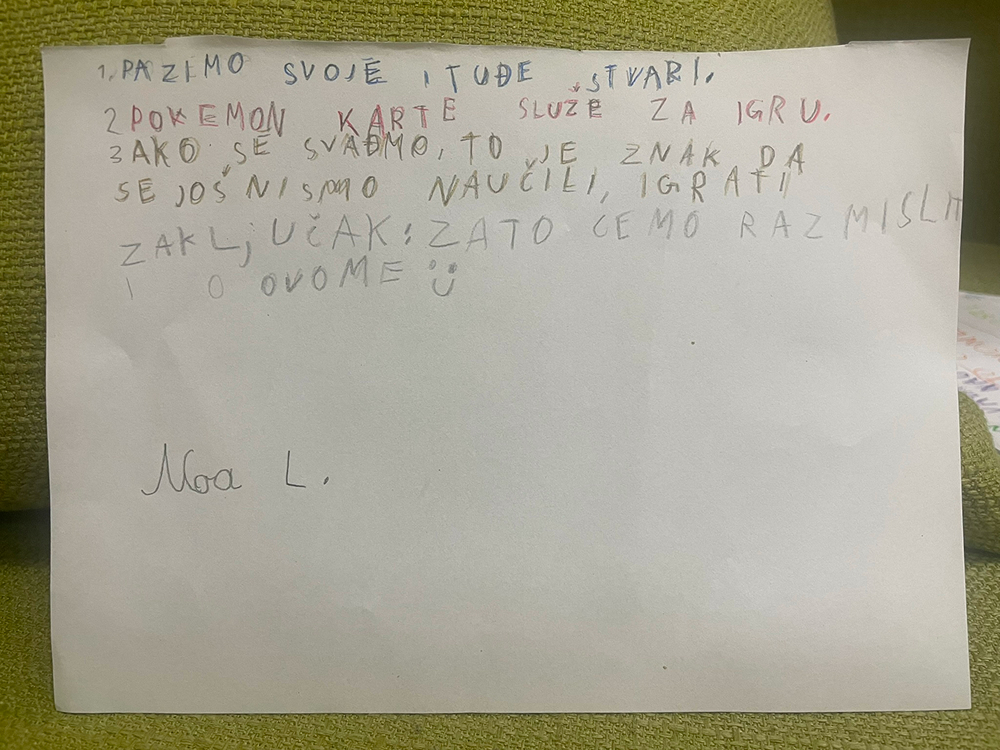 1. PAZIMO SVOJE I TUĐE STVARI.
2 POKEMON KARTE SLUŽE ZA IGRU.
3 AKO SE SVAĐMO, TO JE ZNAK DA
SE JOŠ NISMO NAUČILI, IGRATI
ZAKLJUČAK: ZATO ĆEMO RAZMISLIT
I O OVOME Ü
Noa L.